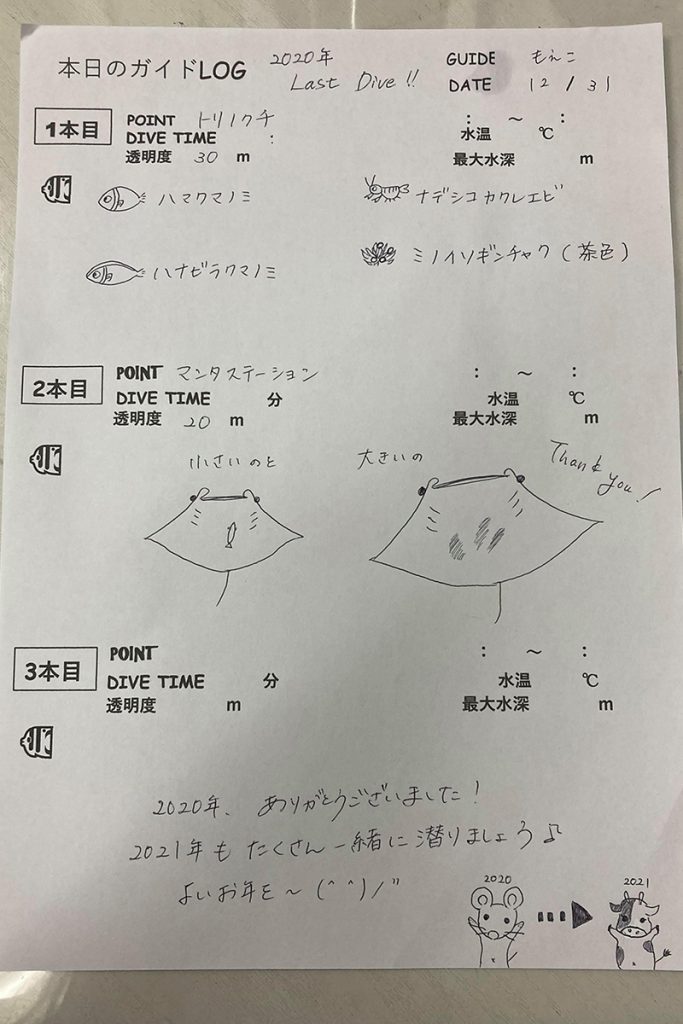 本日のガイドLOG 2020年 Last Dive!!
GUIDE もえこ
DATE 12/31
1本目
POINT トリノクチ
DIVE TIME :
透明度 30 m
: ～ :
水温 ℃
最大水深 m
ハマクマノミ
ナデシコカクレエビ
ハナビラクマノミ
ミノイソギンチャク(茶色)
2本目
POINT マンタステーション
DIVE TIME 分
透明度 20 m
: ～ :
水温 ℃
最大水深 m
小さいのと
大きいの
Thank you!
3本目
POINT
DIVE TIME 分
透明度 m
: ～ :
水温 ℃
最大水深 m
2020年、ありがとうございました!
2021年も たくさん一緒に潜りましょう♪
よいお年を～(^^)/"
2020
2021